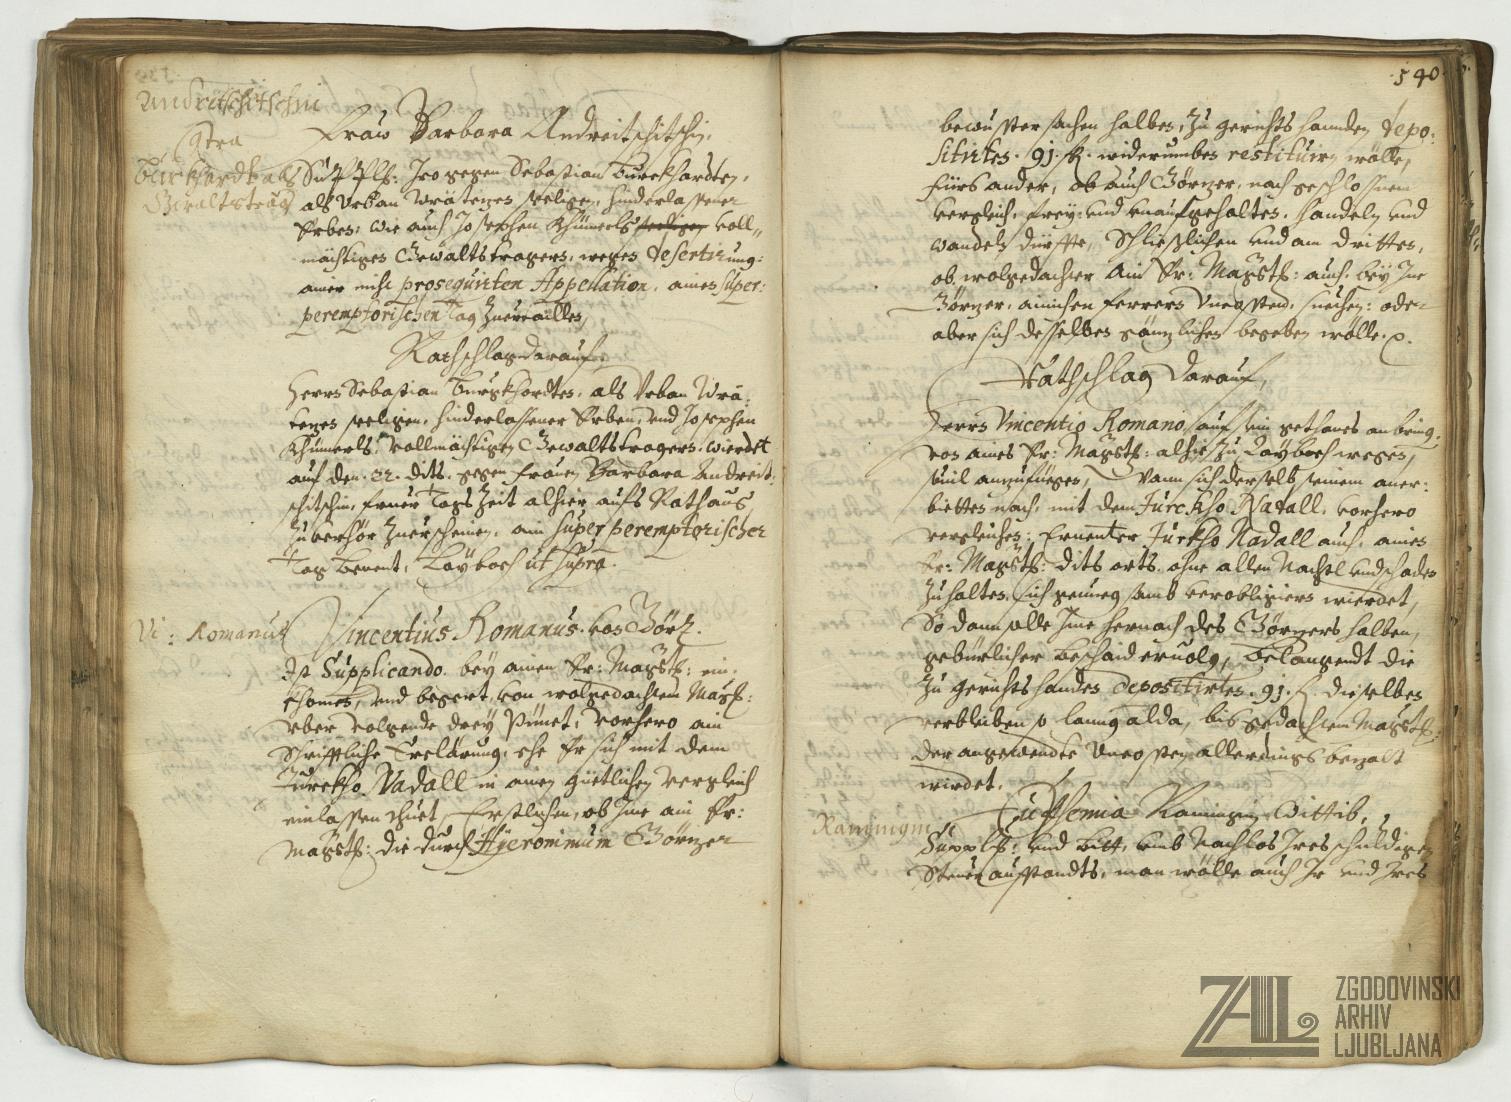 Andreitschitschin
Contra
Burkhardt als
Gwaltstrag
Fraw Barbara Andreitschitschin,
Supplt: Iro gegen Sebastian Burckhardten,
als Urban Wrätenes seeligen, hinderlassener
Erben: wie auch Josephen Khümerls seeligen voll-
mächtigen Gewaltstragers, wegen desertirung:
aner nicht prosequirten Appellation, aines super:
peremptorischen Tag Zuerthaillen,
Rathschlag darauf.
Herrn Sebastian Burgkhardten, als Urban Wrä:
tenes seeligen, hinderlassener Erben, und Josephen
Khümerls vollmächtigen Gewaltstragers, wierdet
auf den 22. dits. gegen Frauen Barbara Andreit:
schitschin, Fruer Tags Zeit alhier aufs Rathaus
Zu verhör Zuerscheinen, ain super peremptorischer
Tag benent, Laybach ut supra.
Vi: Romanus
Vincentius Romanus von Görz.
Ist Supplicando bey ainem Er: Magist: ein
khomen, und begert, von wolgedachtem Magist:
uber volgende drey Punct, vorhero ain
Schrifftliche Erclärung, ehe Er sich mit dem
Jurckho Nadall in ainen güetlichen vergleich
einlassen thuet, Erstlichen, ob Ime ain Er:
Magist: die durch Hyeronimum Görzer
540.
bewuster sachen halben, zu gerichts handen depo:
sitirten 91 f. widerumben restituirn wölle,
Fürs ander, ob auch Görzer, nach geschlossnen
vergleich, frey: und unaufgehalten, handeln und
wandeln dürffte, Schließlichen und am dritten,
ob wolgedachter ain Er: Magist: auch bey Ime
Görzer, ainichen ferrers Uncosten, suechen: oder
aber sich desselben gänzlichen begeben wölle.
Rathschlag darauf,
Herrn Vincentio Romano, auf sein gethanes anbring:
von aines Er: Magist: alhie zu Laybach wegen,
sovil anzufüegen, Wann sich derselb seinem aner:
bietten nach, mit dem Jurckho Nadall, vorhero
vergleichen: Ernenter Jurkho Nadall auch, aines
Er: Magist: dits orts, ohne allen Nachtl und schaden
Zuhalten, sich genueg samb verobligiern wierdet,
So dann solle Ime hernach des Görzers halben,
gebürlicher beschaid ervolg, belangendt die
Zu gerichts handen depositirten 91 f. dieselben
verbleiben so lanng alda, bis gedachtem Magist:
der angewendte Uncosten allerdings bezalt
wirdet.
Kaminigin
Euphemia Kaminigin Wittib,
Supplt: und bitt, umb Nachlas Ires schuldigen
Steur ausstandts, man wölle auch Ir und Ires
ZAL
ZGODOVINSKI
ARHIV
LJUBLJANA